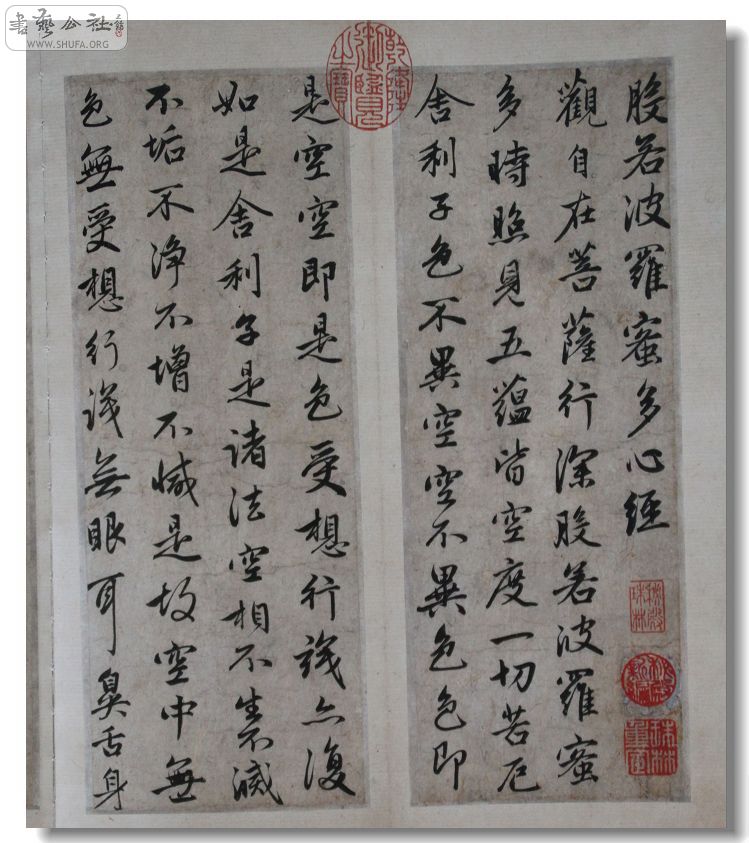 書藝公社
WWW.SHUFA.ORG
乾隆御覽之寶
般若波羅蜜多心經
觀自在菩薩行深般若波羅蜜
多時照見五蘊皆空度一切苦厄
舍利子色不異空空不異色色即
是空空即是色受想行識亦復
如是舍利子是諸法空相不生不滅
不垢不淨不增不減是故空中無
色無受想行識無眼耳鼻舌身
秘殿珠林
秘殿新編
珠林重定